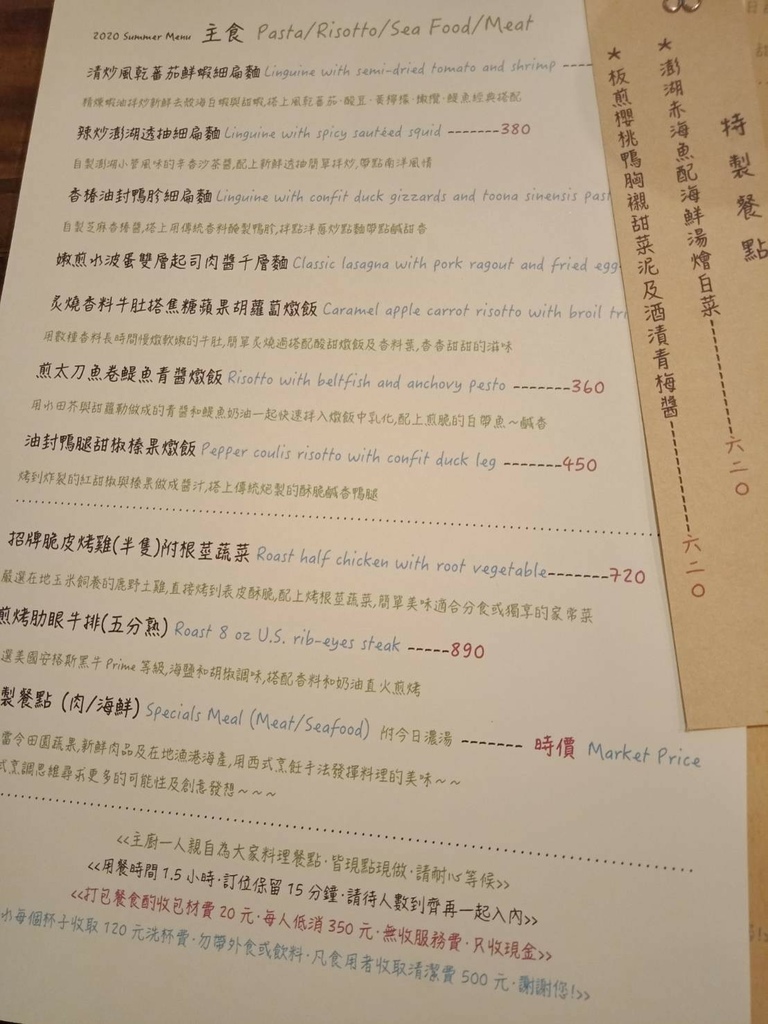 2020 Summer Menu 主食 Pasta/Risotto/Sea Food/Meat
清炒風乾蕃茄鮮蝦細扁麵 Linguine with semi-dried tomato and shrimp ----
精煉蝦油拌炒新鮮去殼海白蝦與甜蝦,搭上風乾蕃茄、酸豆、黃檸檬、橄欖、鯷魚經典搭配
辣炒澎湖透抽細扁麵 Linguine with spicy sautéed squid -------380
自製澎湖小管風味的辛香沙茶醬,配上新鮮透抽簡單拌炒,帶點南洋風情
香椿油封鴨胗細扁麵 Linguine with confit duck gizzards and toona sinensis past
自製芝麻香椿醬,搭上用傳統香料醃製鴨胗,拌點洋蔥炒點麵帶點鹹甜香
嫩煎水波蛋雙層起司肉醬千層麵 Classic lasagna with pork ragout and fried egg
炙燒香料牛肚搭焦糖蘋果胡蘿蔔燉飯 Caramel apple carrot risotto with broil tri
用數種香料長時間慢燉軟嫩的牛肚,簡單炙燒過搭配酸甜燉飯及香料葉,香香甜甜的滋味
煎太刀魚卷鯷魚青醬燉飯 Risotto with beltfish and anchovy pesto -------360
用水田芥與甜蘿勒做成的青醬和鯷魚奶油一起快速拌入燉飯中乳化,配上煎脆的白帶魚～鹹香
油封鴨腿甜椒榛果燉飯 Pepper coulis risotto with confit duck leg -------450
烤到炸裂的紅甜椒與榛果做成醬汁,搭上傳統炮製的酥脆鹹香鴨腿
招牌脆皮烤雞(半隻)附根莖蔬菜 Roast half chicken with root vegetable-------720
嚴選在地玉米飼養的鹿野土雞,直接烤到表皮酥脆,配上烤根莖蔬菜,簡單美味適合分食或獨享的家常菜
煎烤肋眼牛排(五分熟) Roast 8 oz U.S. rib-eyes steak -----890
選美國安格斯黑牛Prime等級,海鹽和胡椒調味,搭配香料和奶油直火煎烤
製餐點 (肉/海鮮) Specials Meal (Meat/Seafood) 附今日濃湯 ------- 時價 Market Price
當令田園蔬果,新鮮肉品及在地漁港海產,用西式烹飪手法發揮料理的美味～～
式烹調思維尋求更多的可能性及創意發想～～～
<<主廚一人親自為大家料理餐點·皆現點現做·請耐心等候>>
<<用餐時間1.5小時·訂位保留15分鐘·請待人數到齊再一起入內>>
<<打包餐食酌收包材費20元·每人低消350元·無收服務費·只收現金>>
水每個杯子收取120元洗杯費·勿帶外食或飲料·凡食用者收取清潔費500元·謝謝您!>>
特製餐點
★澎湖赤海魚配海鮮湯燴白菜---------六二〇
★板煎櫻桃鴨胸襯甜菜泥及酒漬青梅醬---------六二〇